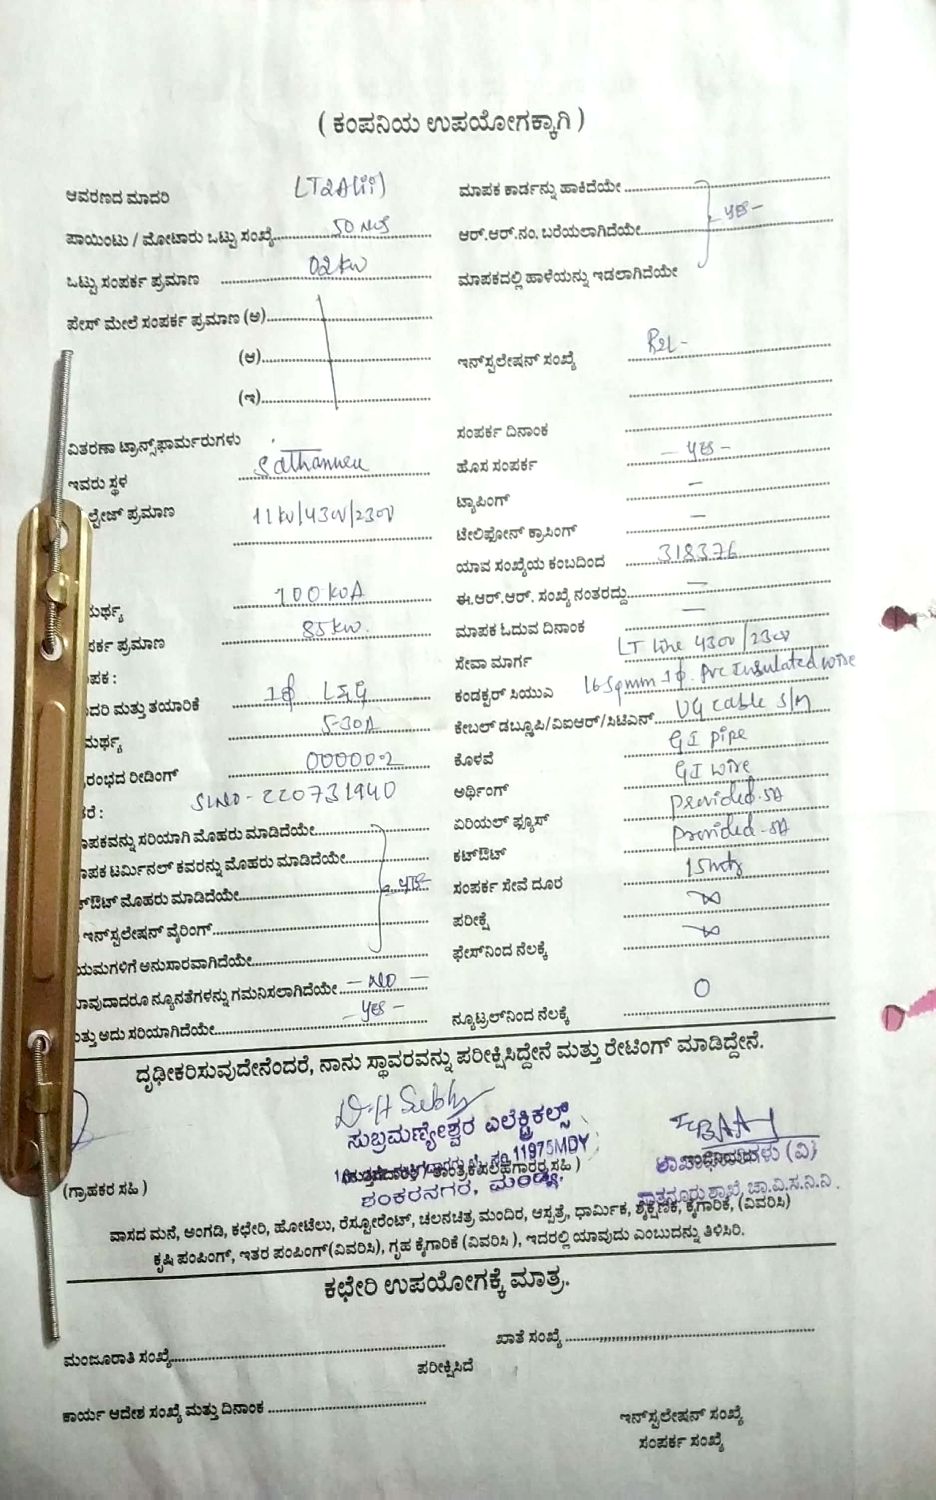 ( ಕಂಪನಿಯ ಉಪಯೋಗಕ್ಕಾಗಿ )
ಆವರಣದ ಮಾದರಿ LT2A(ii)
ಪಾಯಿಂಟು / ಮೋಟಾರು ಒಟ್ಟು ಸಂಖ್ಯೆ 50 Nos
ಒಟ್ಟು ಸಂಪರ್ಕ ಪ್ರಮಾಣ 02 kw
ಪೇಸ್ ಮೇಲೆ ಸಂಪರ್ಕ ಪ್ರಮಾಣ (ಅ)
(ಆ)
(ಇ)
ವಿತರಣಾ ಟ್ರಾನ್ಸ್‌ಫಾರ್ಮರುಗಳು
ಇವರು ಸ್ಥಳ
ಲ್ಟೇಜ್ ಪ್ರಮಾಣ 11kv/430v/230v
ಮರ್ಥ್ಯ 100 KVA
ಪರ್ಕ ಪ್ರಮಾಣ 85kw.
ಪಕ :
ದರಿ ಮತ್ತು ತಯಾರಿಕೆ 1ϕ L&G
ಮರ್ಥ್ಯ 5-30A
ರಂಭದ ರೀಡಿಂಗ್ 00000.2
ರೆ : SLNO - 220731940
ಾಪಕವನ್ನು ಸರಿಯಾಗಿ ಮೊಹರು ಮಾಡಿದೆಯೇ
ಾಪಕ ಟರ್ಮಿನಲ್ ಕವರನ್ನು ಮೊಹರು ಮಾಡಿದೆಯೇ
ಕ್‌ಔಟ್ ಮೊಹರು ಮಾಡಿದೆಯೇ yes
ಇನ್‌ಸ್ಟಲೇಷನ್ ವೈರಿಂಗ್
ಯಮಗಳಿಗೆ ಅನುಸಾರವಾಗಿದೆಯೇ
ಾವುದಾದರೂ ನ್ಯೂನತೆಗಳನ್ನು ಗಮನಿಸಲಾಗಿದೆಯೇ - NO -
ತ್ತು ಅದು ಸರಿಯಾಗಿದೆಯೇ - yes -
ಮಾಪಕ ಕಾರ್ಡನ್ನು ಹಾಕಿದೆಯೇ
ಆರ್.ಆರ್.ನಂ. ಬರೆಯಲಾಗಿದೆಯೇ - yes -
ಮಾಪಕದಲ್ಲಿ ಹಾಳೆಯನ್ನು ಇಡಲಾಗಿದೆಯೇ
ಇನ್‌ಸ್ಟಲೇಷನ್ ಸಂಖ್ಯೆ
ಸಂಪರ್ಕ ದಿನಾಂಕ
ಹೊಸ ಸಂಪರ್ಕ - yes -
ಟ್ಯಾಪಿಂಗ್ -
ಟೇಲಿಫೋನ್ ಕ್ರಾಸಿಂಗ್ -
ಯಾವ ಸಂಖ್ಯೆಯ ಕಂಬದಿಂದ 318376
ಈ.ಆರ್.ಆರ್. ಸಂಖ್ಯೆ ನಂತರದ್ದು -
ಮಾಪಕ ಓದುವ ದಿನಾಂಕ -
ಸೇವಾ ಮಾರ್ಗ LT Line 430v/230v
ಕಂಡಕ್ಟರ್ ಸಿಯುಎ 16 Sqmm 1ϕ. Pvc Insulated wire
ಕೇಬಲ್ ಡಬ್ಲೂಪಿ/ವಿಐಆರ್/ಸಿಟಿಎನ್ UG cable
ಕೊಳವೆ GI pipe
ಅರ್ಥಿಂಗ್ GI wire
ಏರಿಯಲ್ ಫ್ಯೂಸ್ Provided-5A
ಕಟ್‌ಔಟ್ Provided-5A
ಸಂಪರ್ಕ ಸೇವೆ ದೂರ 15mtr
ಪರೀಕ್ಷೆ ∞
ಫೇಸ್‌ನಿಂದ ನೆಲಕ್ಕೆ ∞
ನ್ಯೂಟ್ರಲ್‌ನಿಂದ ನೆಲಕ್ಕೆ 0
ದೃಢೀಕರಿಸುವುದೇನೆಂದರೆ, ನಾನು ಸ್ಥಾವರವನ್ನು ಪರೀಕ್ಷಿಸಿದ್ದೇನೆ ಮತ್ತು ರೇಟಿಂಗ್ ಮಾಡಿದ್ದೇನೆ.
ಸುಬ್ರಮಣ್ಯೇಶ್ವರ ಎಲೆಕ್ಟ್ರಿಕಲ್ಸ್
11975MDY
(ಗ್ರಾಹಕರ ಸಹಿ )
ಶಂಕರನಗರ, ಮಂಡ್ಯ.
ಚಾ.ವಿ.ಸ.ನಿ.ನಿ.
ವಾಸದ ಮನೆ, ಅಂಗಡಿ, ಕಛೇರಿ, ಹೋಟೆಲು, ರೆಸ್ಟೋರೆಂಟ್, ಚಲನಚಿತ್ರ ಮಂದಿರ, ಆಸ್ಪತ್ರೆ, ಧಾರ್ಮಿಕ, ಶೈಕ್ಷಣಿಕ, ಕೈಗಾರಿಕೆ, (ವಿವರಿಸಿ)
ಕೃಷಿ ಪಂಪಿಂಗ್, ಇತರ ಪಂಪಿಂಗ್(ವಿವರಿಸಿ), ಗೃಹ ಕೈಗಾರಿಕೆ (ವಿವರಿಸಿ ), ಇದರಲ್ಲಿ ಯಾವುದು ಎಂಬುದನ್ನು ತಿಳಿಸಿರಿ.
ಕಛೇರಿ ಉಪಯೋಗಕ್ಕೆ ಮಾತ್ರ.
ಮಂಜೂರಾತಿ ಸಂಖ್ಯೆ
ಖಾತೆ ಸಂಖ್ಯೆ
ಪರೀಕ್ಷಿಸಿದೆ
ಕಾರ್ಯ ಆದೇಶ ಸಂಖ್ಯೆ ಮತ್ತು ದಿನಾಂಕ
ಇನ್‌ಸ್ಟಲೇಷನ್ ಸಂಖ್ಯೆ
ಸಂಪರ್ಕ ಸಂಖ್ಯೆ